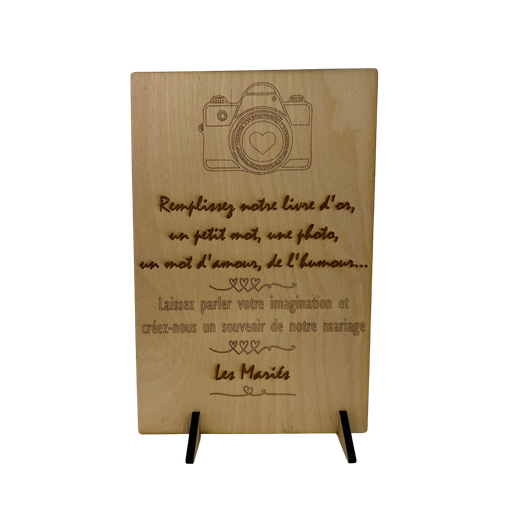 Remplissez notre livre d'or,
un petit mot, une photo,
un mot d'amour, de l'humour...
Laissez parler votre imagination et
créez-nous un souvenir de notre mariage
Les Mariés